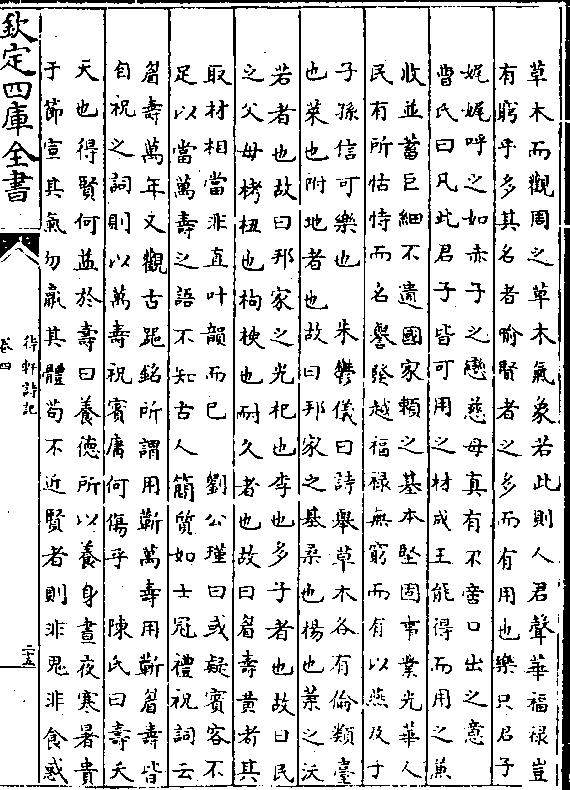 草木而觀周之草木氣象若此則人君聲華福禄豈
有窮乎多其名者喻賢者之多而有用也樂只君子
娓娓呼之如赤子之戀慈母真有不啻口出之意
曹氏曰凡此君子皆可用之材成王能得而用之兼
收並蓄巨細不遺國家賴之基本堅固事業光華人
民有所怙恃而名譽發越福禄無窮而有以燕及于
子孫信可樂也 朱鬱儀曰詩舉草木各有倫類臺
也萊也附地者也故曰邦家之基桑也楊也葉之沃
若者也故曰邦家之光杞也李也多子者也故曰民
之父母栲杻也枸楰也耐久者也故曰眉壽黄耇其
取材相當非直叶韻而已 劉公瑾曰或疑賓客不
足以當萬壽之語不知古人簡質如士冠禮祝詞云
眉壽萬年又觀古器銘所謂用蘄萬壽用蘄眉壽皆
自祝之詞則以萬壽祝賓庸何傷乎 陳氏曰壽夭
天也得賢何益於壽曰養德所以養身晝夜寒暑貴
于節宣其氣勿羸其體苟不近賢者則非鬼非食惑
欽定四庫全書
待軒詩記
卷四
二十五